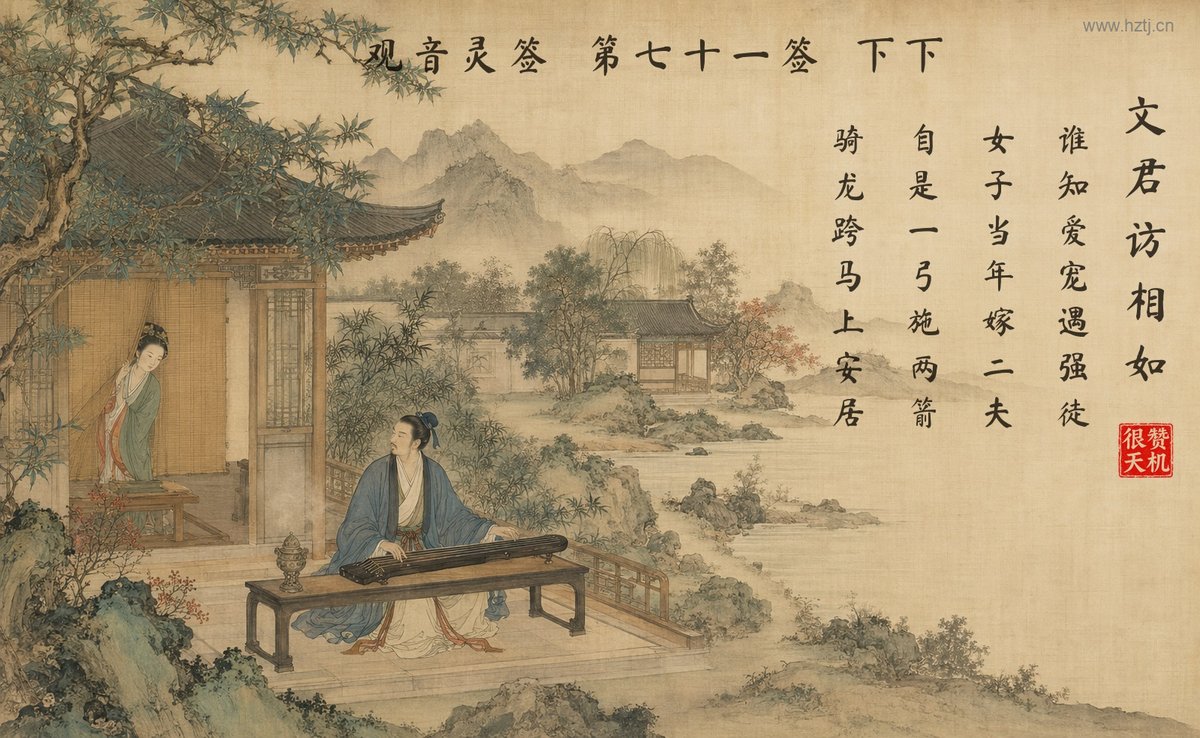 www.hztj.cn
观音灵签 第七十一签 下下
文君访相如
谁知爱宠遇强徒
女子当年嫁二夫
自是一弓施两箭
骑龙跨马上安居
赞机
很天